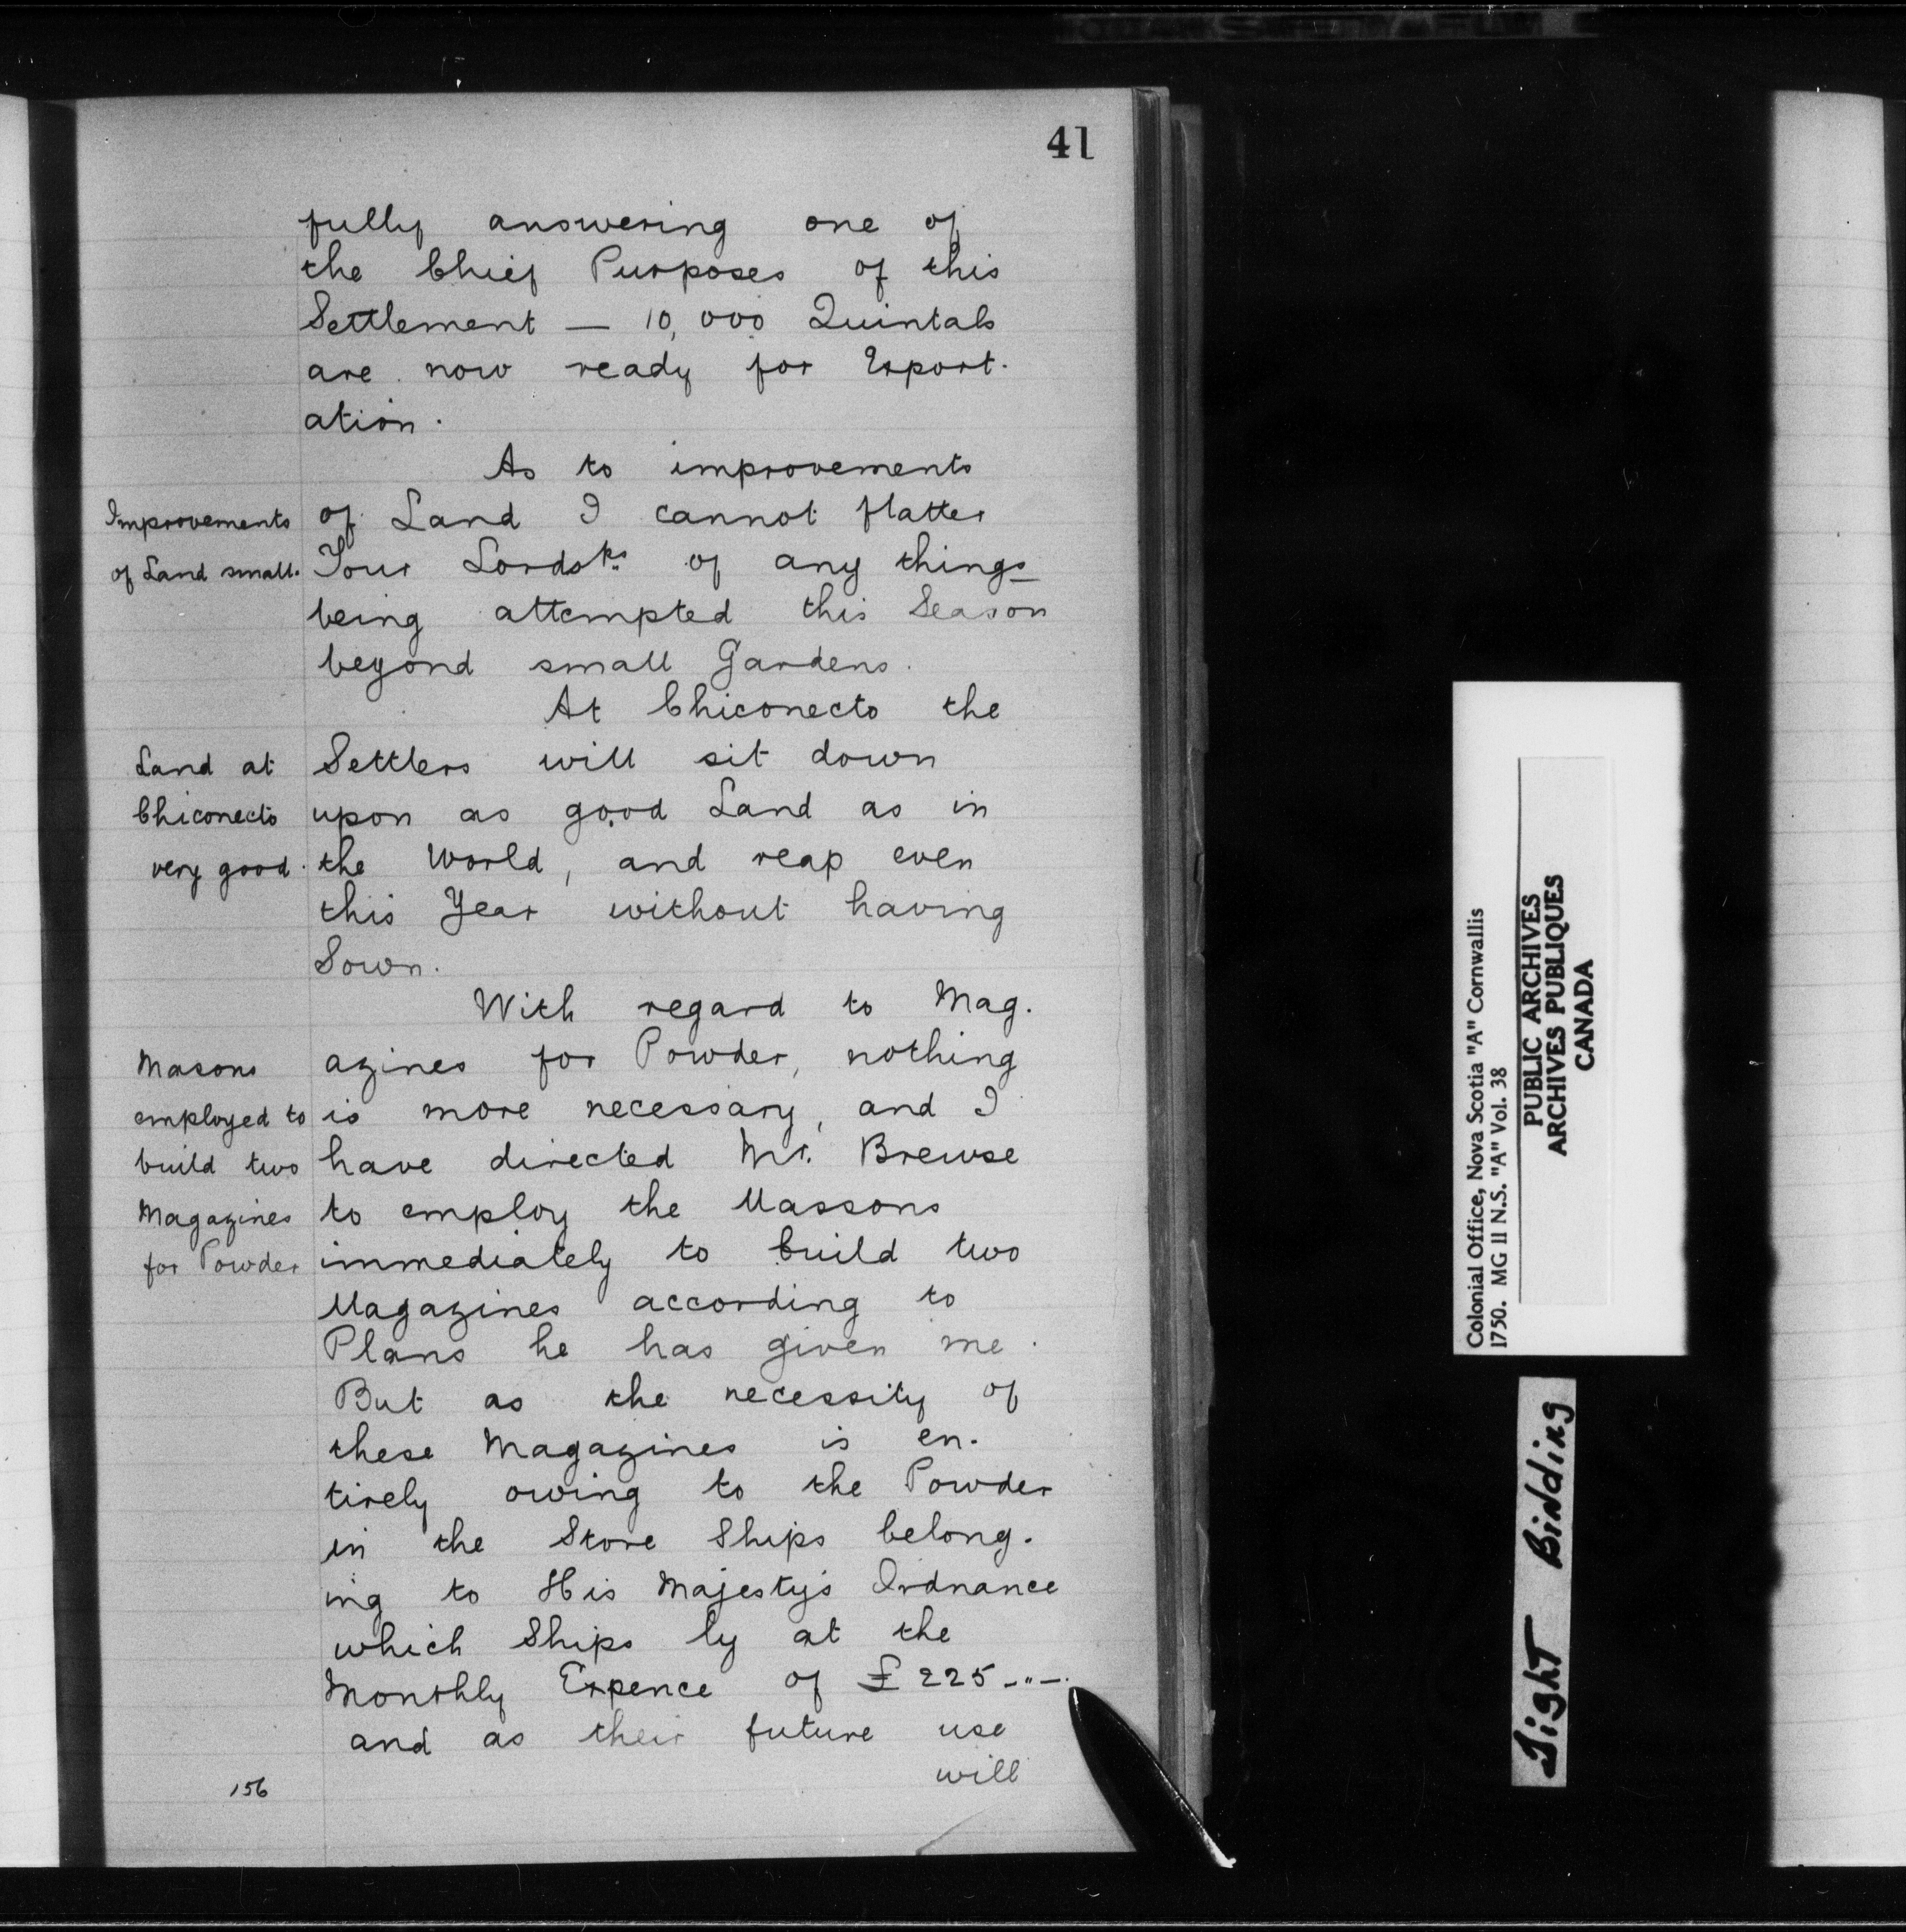 41
fully answering one of
the Chief Purposes of this
Settlement — 10,000 Quintals
are now ready for Export-
ation.
As to improvements
Improvements
of Land small.
of Land I cannot flatter
Your Lordsps. of any things
being attempted this Season
beyond small Gardens.
At Chiconecto the
Land at
Chiconecto
very good.
Settlers will sit down
upon as good Land as in
the World, and reap even
this Year without having
Sown.
With regard to Mag-
Masons
employed to
build two
Magazines
for Powder
azines for Powder, nothing
is more necessary, and I
have directed Mr. Brewse
to employ the Massons
immediately to build two
Magazines according to
Plans he has given me.
But as the necessity of
these Magazines is en-
tirely owing to the Powder
in the Store Ships belong-
ing to His Majesty's Ordnance
which Ships ly at the
Monthly Expence of £225-"-.
and as their future use
will
156
Colonial Office, Nova Scotia "A" Cornwallis
1750. MG II N.S. "A" Vol. 38
PUBLIC ARCHIVES
ARCHIVES PUBLIQUES
CANADA
Tight Binding